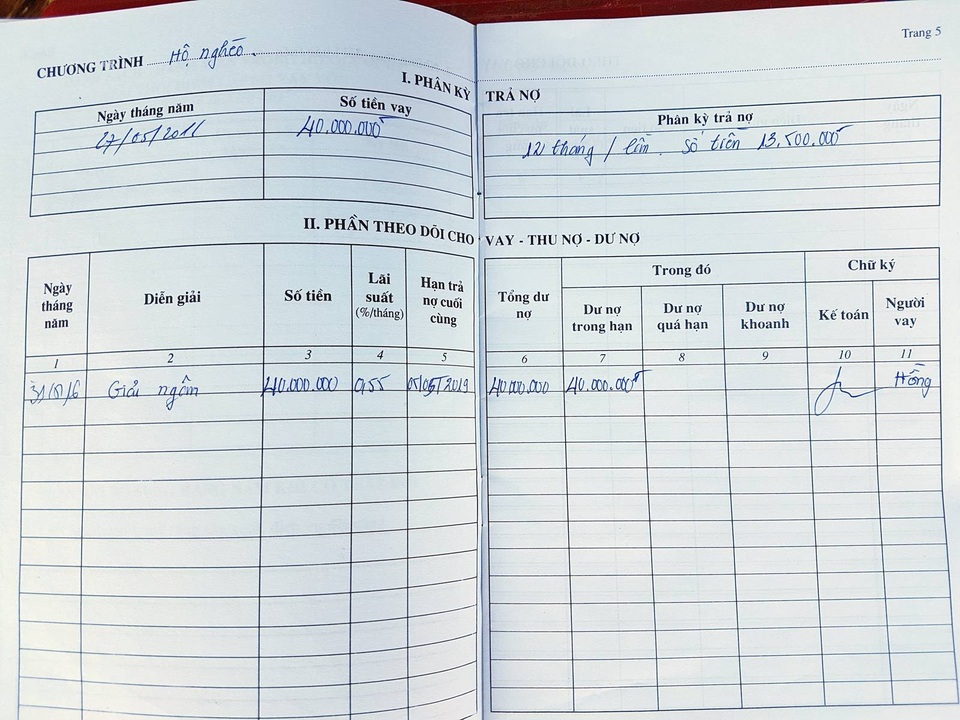 Trang 5
CHƯƠNG TRÌNH Hộ nghèo.
I. PHÂN KỲ TRẢ NỢ
Ngày tháng năm Số tiền vay Phân kỳ trả nợ
27/05/2011 40.000.000đ 12 tháng / lần. Số tiền 13.500.000đ
II. PHẦN THEO DÕI CHO VAY - THU NỢ - DƯ NỢ
Ngày tháng năm Diễn giải Số tiền Lãi suất (%/tháng) Hạn trả nợ cuối cùng Tổng dư nợ Trong đó Chữ ký
Dư nợ trong hạn Dư nợ quá hạn Dư nợ khoanh Kế toán Người vay
1 2 3 4 5 6 7 8 9 10 11
Giải ngân 40.000.000 0,55 05/2019 40.000.000 40.000.000đ Hồng